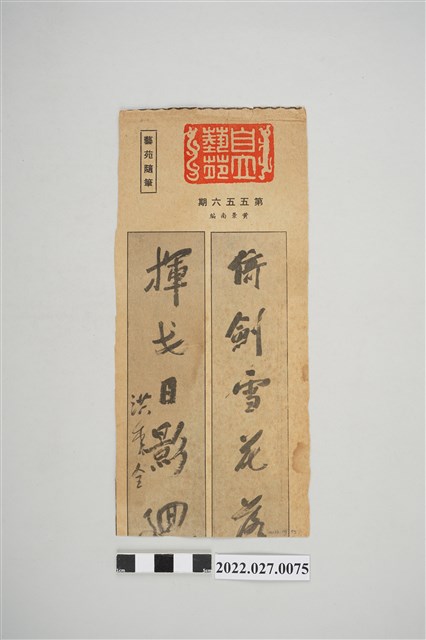 自立藝苑
藝苑隨筆
第五五六期
黃景南編
倚劍雪花落
揮戈日影
洪秀全
2022.027.0075